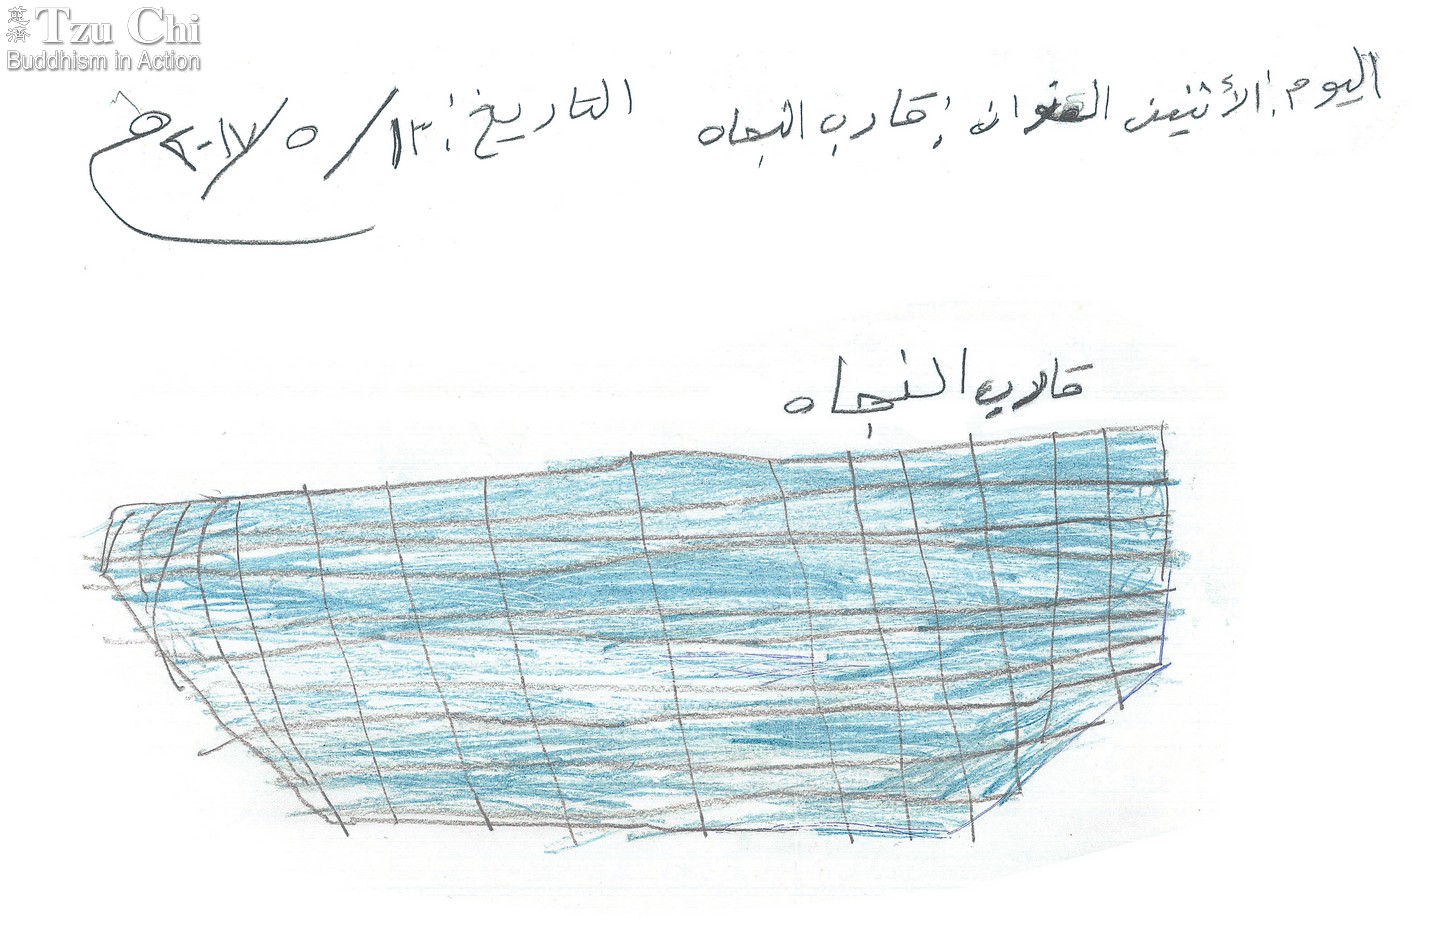 慈濟 Tzu Chi
Buddhism in Action
اليوم: الأثنين العنوان: قارب النجاه التاريخ: ١٣/٥/٢٠١٧م
قارب النجاه